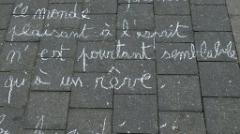 ce monde
plaisant à l'esprit
n'est pourtant semblable
qu'à un rêve